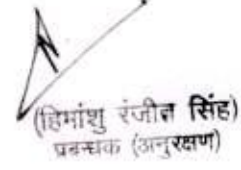 (हिमांशु रंजीत सिंह)
प्रबन्धक (अनुरक्षण)